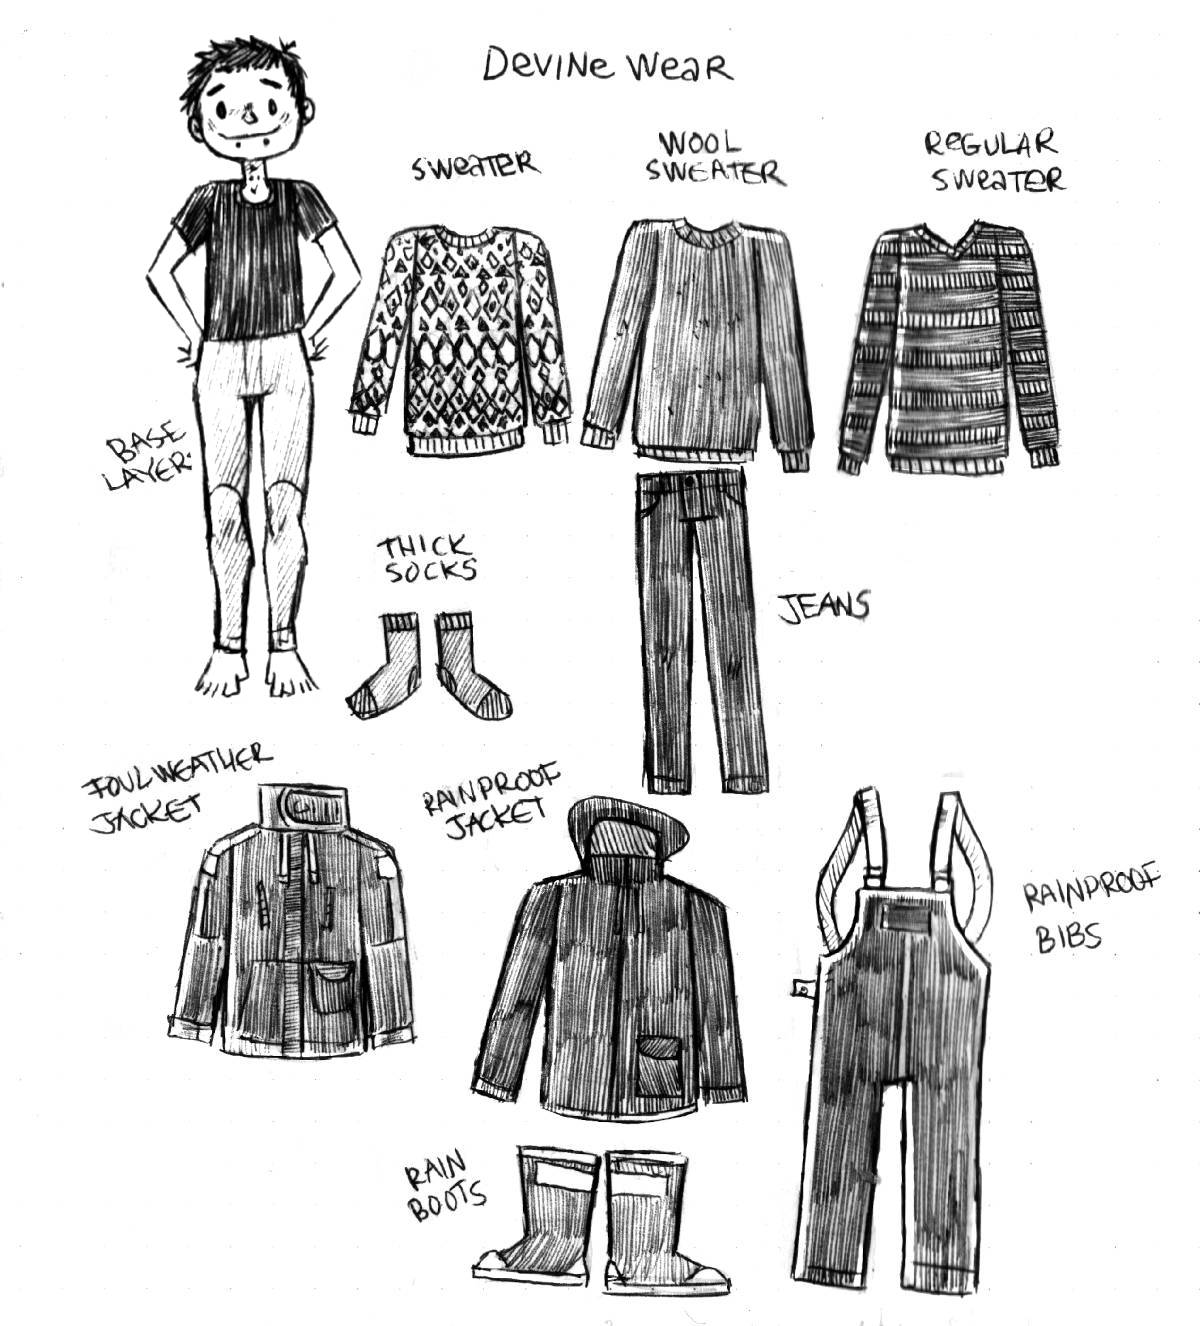 DEVINE WEAR
SWEATER
WOOL
SWEATER
REGULAR
SWEATER
BASE
LAYER
THICK
SOCKS
JEANS
FOULWEATHER
JACKET
RAINPROOF
JACKET
RAINPROOF
BIBS
RAIN
BOOTS